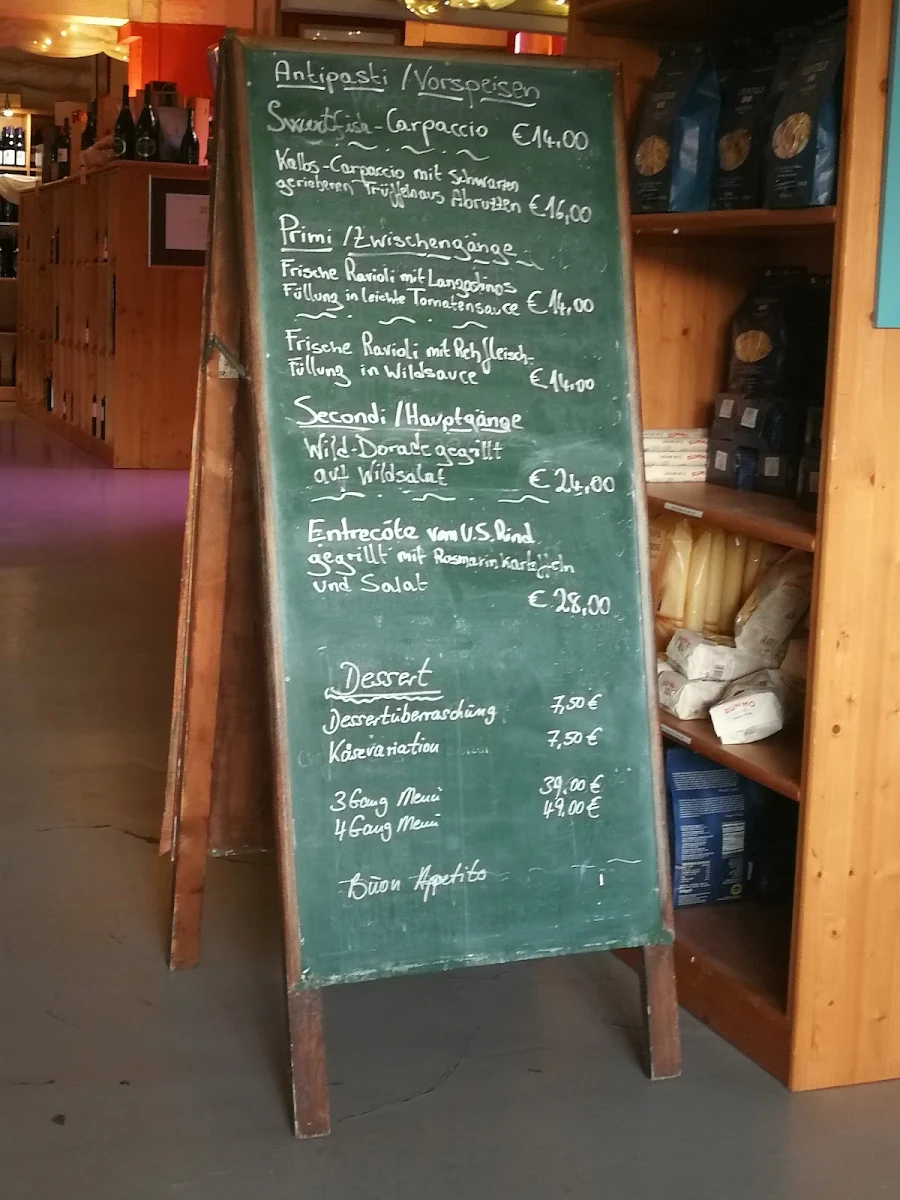 Antipasti / Vorspeisen
Swertfish-Carpaccio €14,00
Kalbs-Carpaccio mit schwarzen
geriebenen Trüffeln aus Abruzzen €16,00
Primi / Zwischengänge
Frische Ravioli mit Langostinos
Füllung in leichte Tomatensauce €14,00
Frische Ravioli mit Rehfleisch-
Füllung in Wildsauce €14,00
Secondi / Hauptgänge
Wild-Dorade gegrillt
auf Wildsalat €24,00
Entrecôte vom U.S. Rind
gegrillt mit Rosmarinkartoffeln
und Salat
€ 28,00
Dessert
Dessertüberraschung 7,50 €
Käsevariation 7,50 €
3 Gang Menü 39,00 €
4 Gang Menü 49,00 €
Buon Appetito